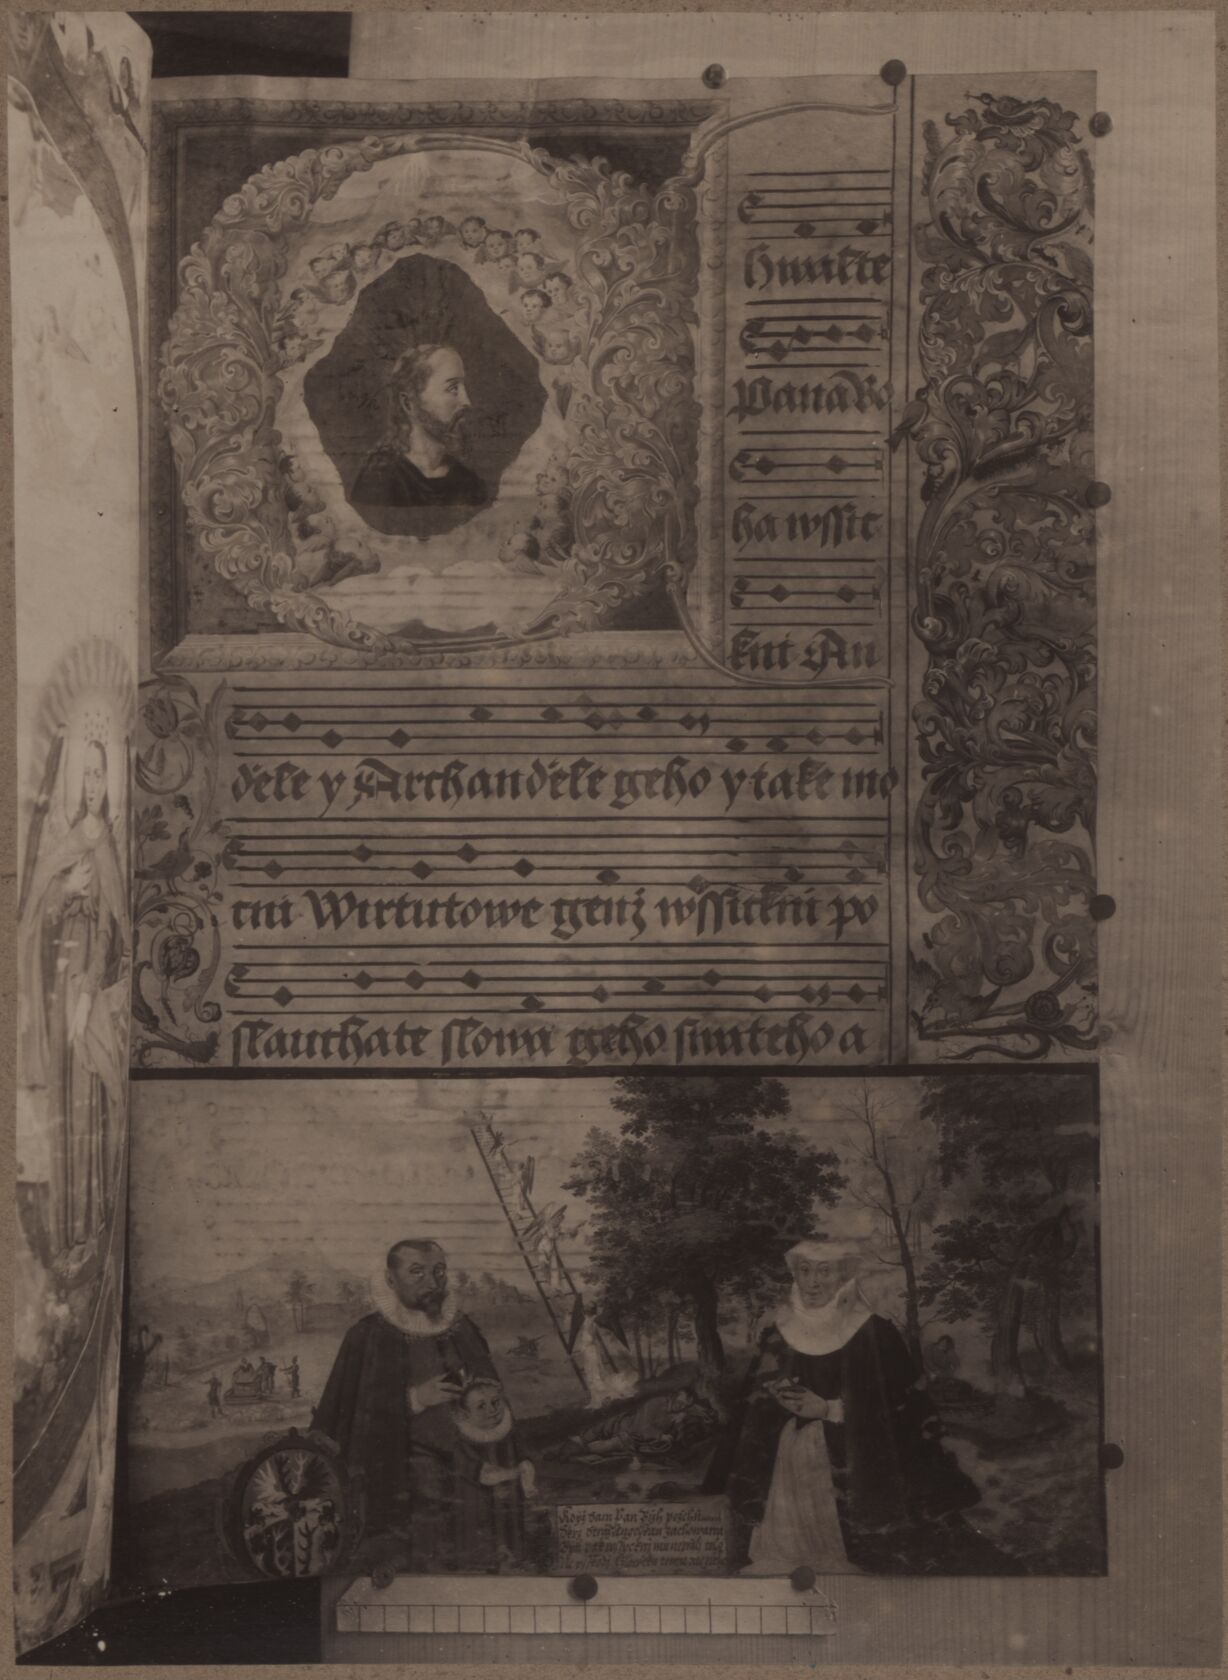 Chwalte
Pana Bo
ha wssic
kni An
děle y Archanděle geho y take mo
cni Wirtutowe genž wssickni po
slauchate slowa geho swateho a
Když sám Pan Bůh